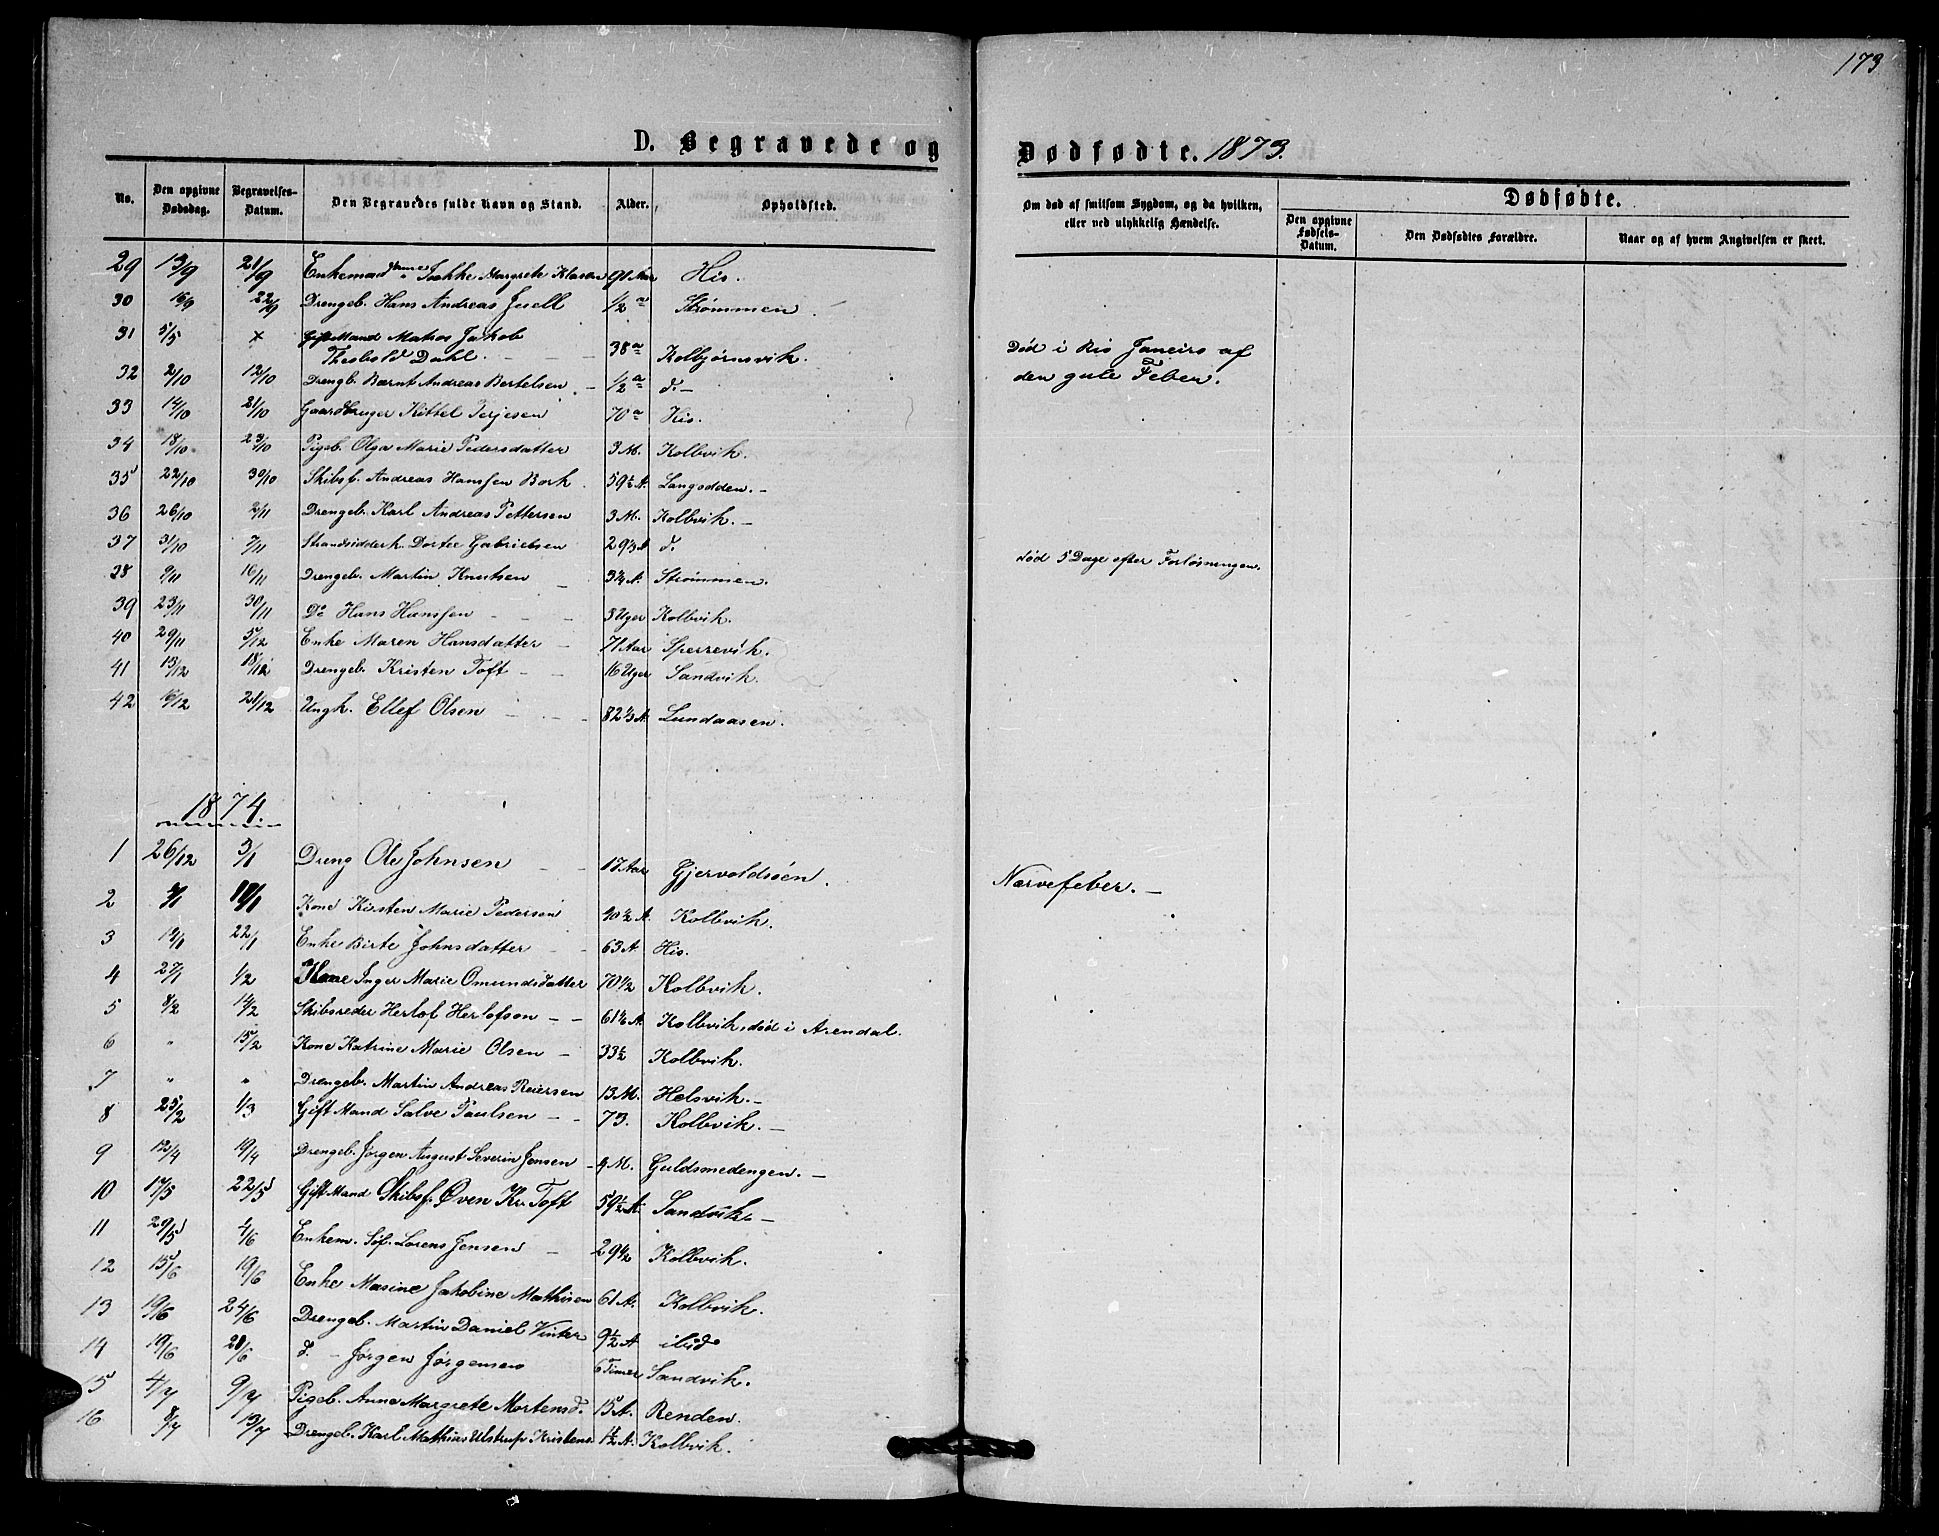 173
D. Begravede og Dødfødte. 1873.
No. Den opgivne Dødsdag. Begravelses-Datum. Den Begravedes fulde Navn og Stand. Alder. Opholdsted. Om død af smitsom Sygdom, og da hvilken, eller ved ulykkelig Hændelse. Dødfødte.
Den opgivne Fødsels-Datum. Den Dødfødtes Forældre. Naar og af hvem Angivelsen er skeet.
29 13/9 21/9 Enkemand Margrete Klasen 91 Aar His.
30 16/9 22/9 Drengeb. Hans Andreas Juell 1/2 a Strømmen.
31 5/5 × Gift Mand Matros Jakob
Theobold Dahl. 38 a Kolbjørnsvik. Død i Rio Janeiro af
den gule Feber.
32 2/10 12/10 Drengb. Bernt Andreas Bertelsen 1/2 a d.
33 14/10 21/10 Gaardbruger Kittel Terjesen 70 a His.
34 18/10 23/10 Pigeb. Olga Marie Pedersdatter 3 M. Kolbvik.
35 22/10 30/10 Skibsf. Andreas Hanssen Bork 59 1/2 A. Langodden.
36 26/10 2/11 Drengeb. Karl Andreas Pettersen 3 M. Kolbvik.
37 31/10 7/11 Strandsidderk. Dortee Gabrielsen 29 A d. død 5 Dage efter Forløsningen.
38 9/11 16/11 Drengeb. Martin Knutsen A. Strømmen.
39 23/11 30/11 Do Hans Hanssen 3 Uger Kolbvik.
40 29/11 5/12 Enke Maren Hansdatter 71 Aar Sperrevik.
41 13/12 18/12 Drengeb. Kristen Toft 16 Uger Sandvik.
42 16/12 21/12 Ungk. Ellef Olsen 82 1/3 A. Lundaasen.
1874.
1 26/12 3/1 Dreng Ole Johnsen 17 Aar Gjervoldsøen. Nervefeber.
2 Kone Kirsten Marie Pedersen 40 1/2 A. Kolbvik.
3 22/1 Enke Birte Johnsdatter 63 A His.
4 27/1 1/2 Kone Inger Marie Omundsdatter 70 1/2 Kolbvik.
5 8/2 14/2 Skibsreder Herlof Herlofson 61 A. Kolbvik død i Arendal.
6 " 15/2 Kone Katrine Marie Olsen 33 1/2 Kolbvik.
7 " " Drengeb. Martin Andreas Reiersen 13 M. Helsvik.
8 25/2 1/3 Gift Mand Salve Paulsen 73. Kolbvik.
9 12/4 19/4 Drengeb. Jørgen August Severin Jensen 9 M. Guldsmedengen.
10 17/5 22/5 Gift Mand Skibsf. Øven Kr. Toft 59 1/2 A. Sandvik
11 29/5 4/6 Enkem. Søf. Lorens Jensen 29 1/2 Kolbvik.
12 15/6 19/6 Enke Masine Jakobine Mathisen 61 A. Kolbvik.
13 19/6 24/6 Drengeb. Martin Daniel Vinter 9 1/2 A ibid
14 19/6 28/6 d. Jørgen Jørgensen 6 Timer Sandvik.
15 4/7 9/7 Pigeb. Anne Margrete Mortensd. 15 A. Renden.
16 8/7 13/7 Drengeb. Karl Mathias Ulstrup Kristens. 1 1/2 A. Kolbvik.